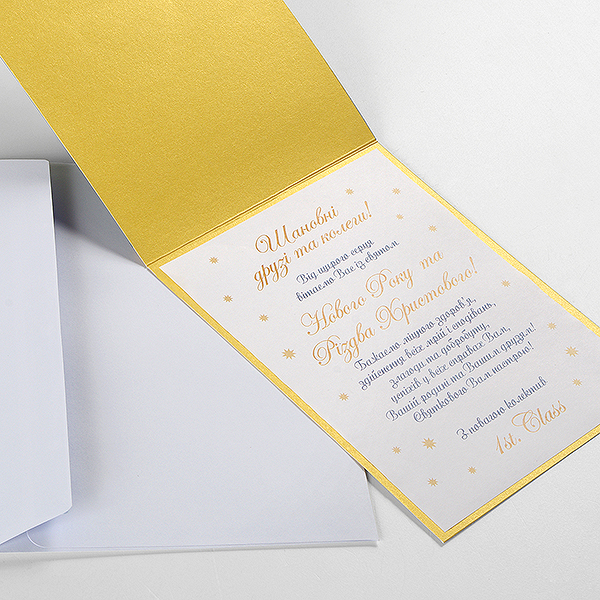 Шановні
друзі та колеги!
Від щирого серця
вітаємо Вас із святом
Нового Року та
Різдва Христового!
Бажаємо міцного здоров'я,
здійснення всіх мрій і сподівань,
злагоди та добробуту,
успіхів у всіх справах Вам,
Вашій родині та Вашим друзям!
Святкового Вам настрою!
З повагою колектив
1st. Class